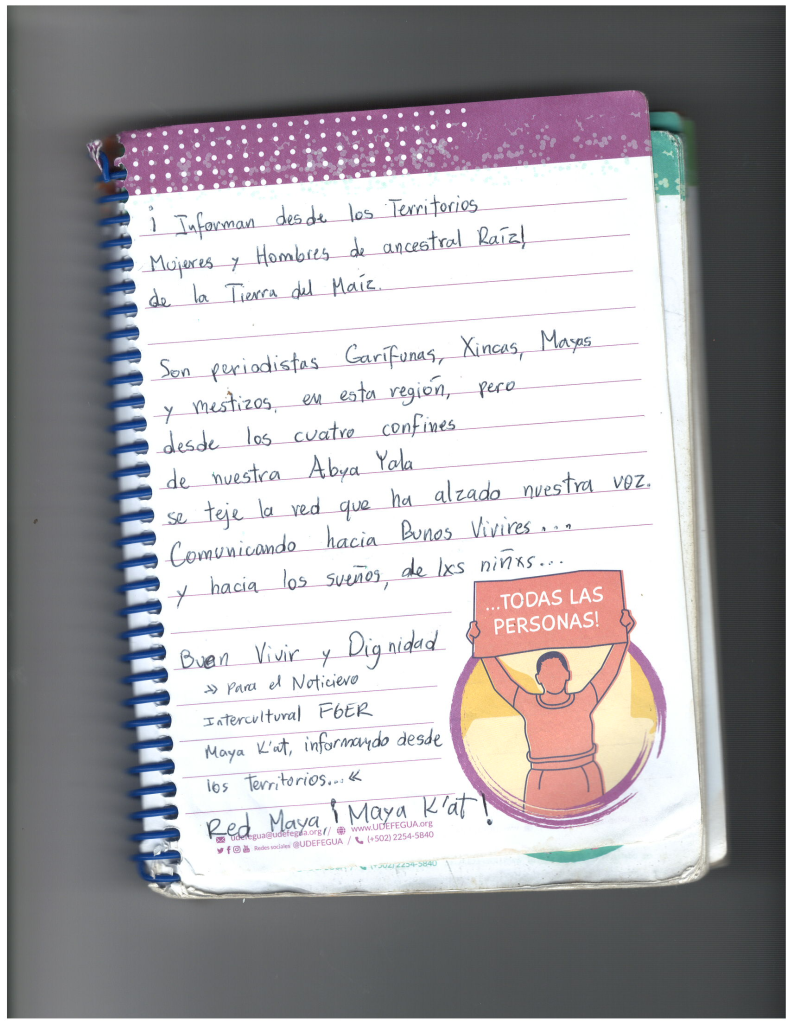 ¡ Informan desde los Territorios
Mujeres y Hombres de ancestral Raíz!
de la Tierra del Maíz.
Son periodistas Garífunas, Xincas, Mayas
y mestizos, en esta región, pero
desde los cuatro confines
de nuestra Abya Yala
se teje la red que ha alzado nuestra voz.
Comunicando hacia Bunos Vivires...
y hacia los sueños, de lxs niñxs...
...TODAS LAS
PERSONAS!
Buen Vivir y Dignidad
» Para el Noticiero
Intercultural FGER
Maya K'at, informando desde
los territorios...«
Red Maya ¡ Maya K'at !
udefegua@udefegua.org // www.UDEFEGUA.org
Redes sociales @UDEFEGUA / (+502) 2254-5840
(+502) 2254-5840